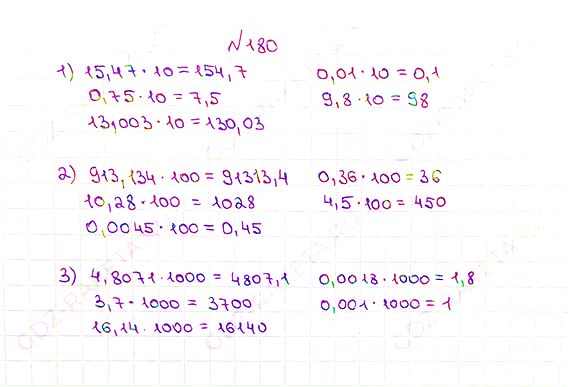 №180
1) 15,47 · 10 = 154,7 0,01 · 10 = 0,1
0,75 · 10 = 7,5 9,8 · 10 = 98
13,003 · 10 = 130,03
2) 913,134 · 100 = 91313,4 0,36 · 100 = 36
10,28 · 100 = 1028 4,5 · 100 = 450
0,0045 · 100 = 0,45
3) 4,8071 · 1000 = 4807,1 0,0018 · 1000 = 1,8
3,7 · 1000 = 3700 0,001 · 1000 = 1
16,14 · 1000 = 16140